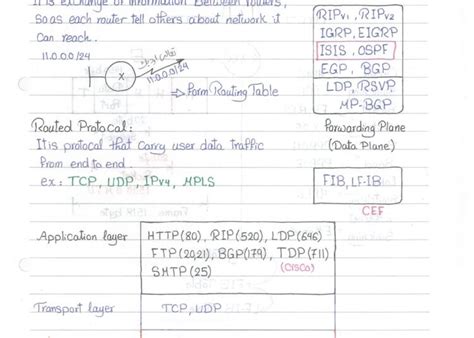 It is exchange of information between routers,
so as each router tell others about network it
Can reach.
11.0.0.0/24
X
11.0.0.0/24
⇒ Form Routing Table
RIPv1, RIPv2
IGRP, EIGRP
ISIS, OSPF
EGP, BGP
LDP, RSVP
MP-BGP
Routed Protocal:
It is protocal that Carry user data traffic
From end to end.
ex: TCP, UDP, IPv4, MPLS
Forwarding Plane
(Data Plane)
FIB, LF-IB
CEF
Application layer
HTTP(80), RIP(520), LDP(646)
FTP(20,21), BGP(179), TDP(711)
SMTP(25) (CISCO)
Transport layer
TCP, UDP